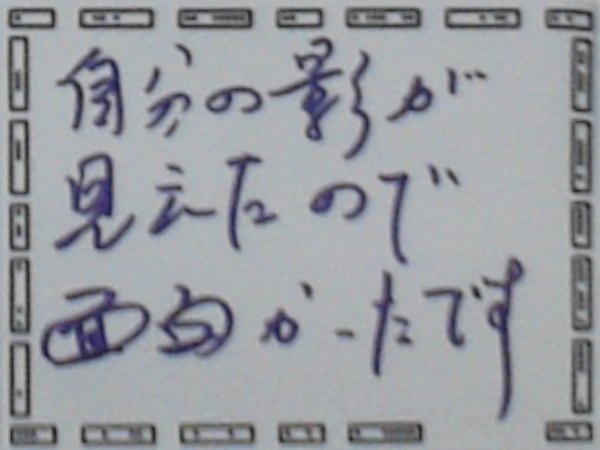 自分の影が
見えたので
面白かったです